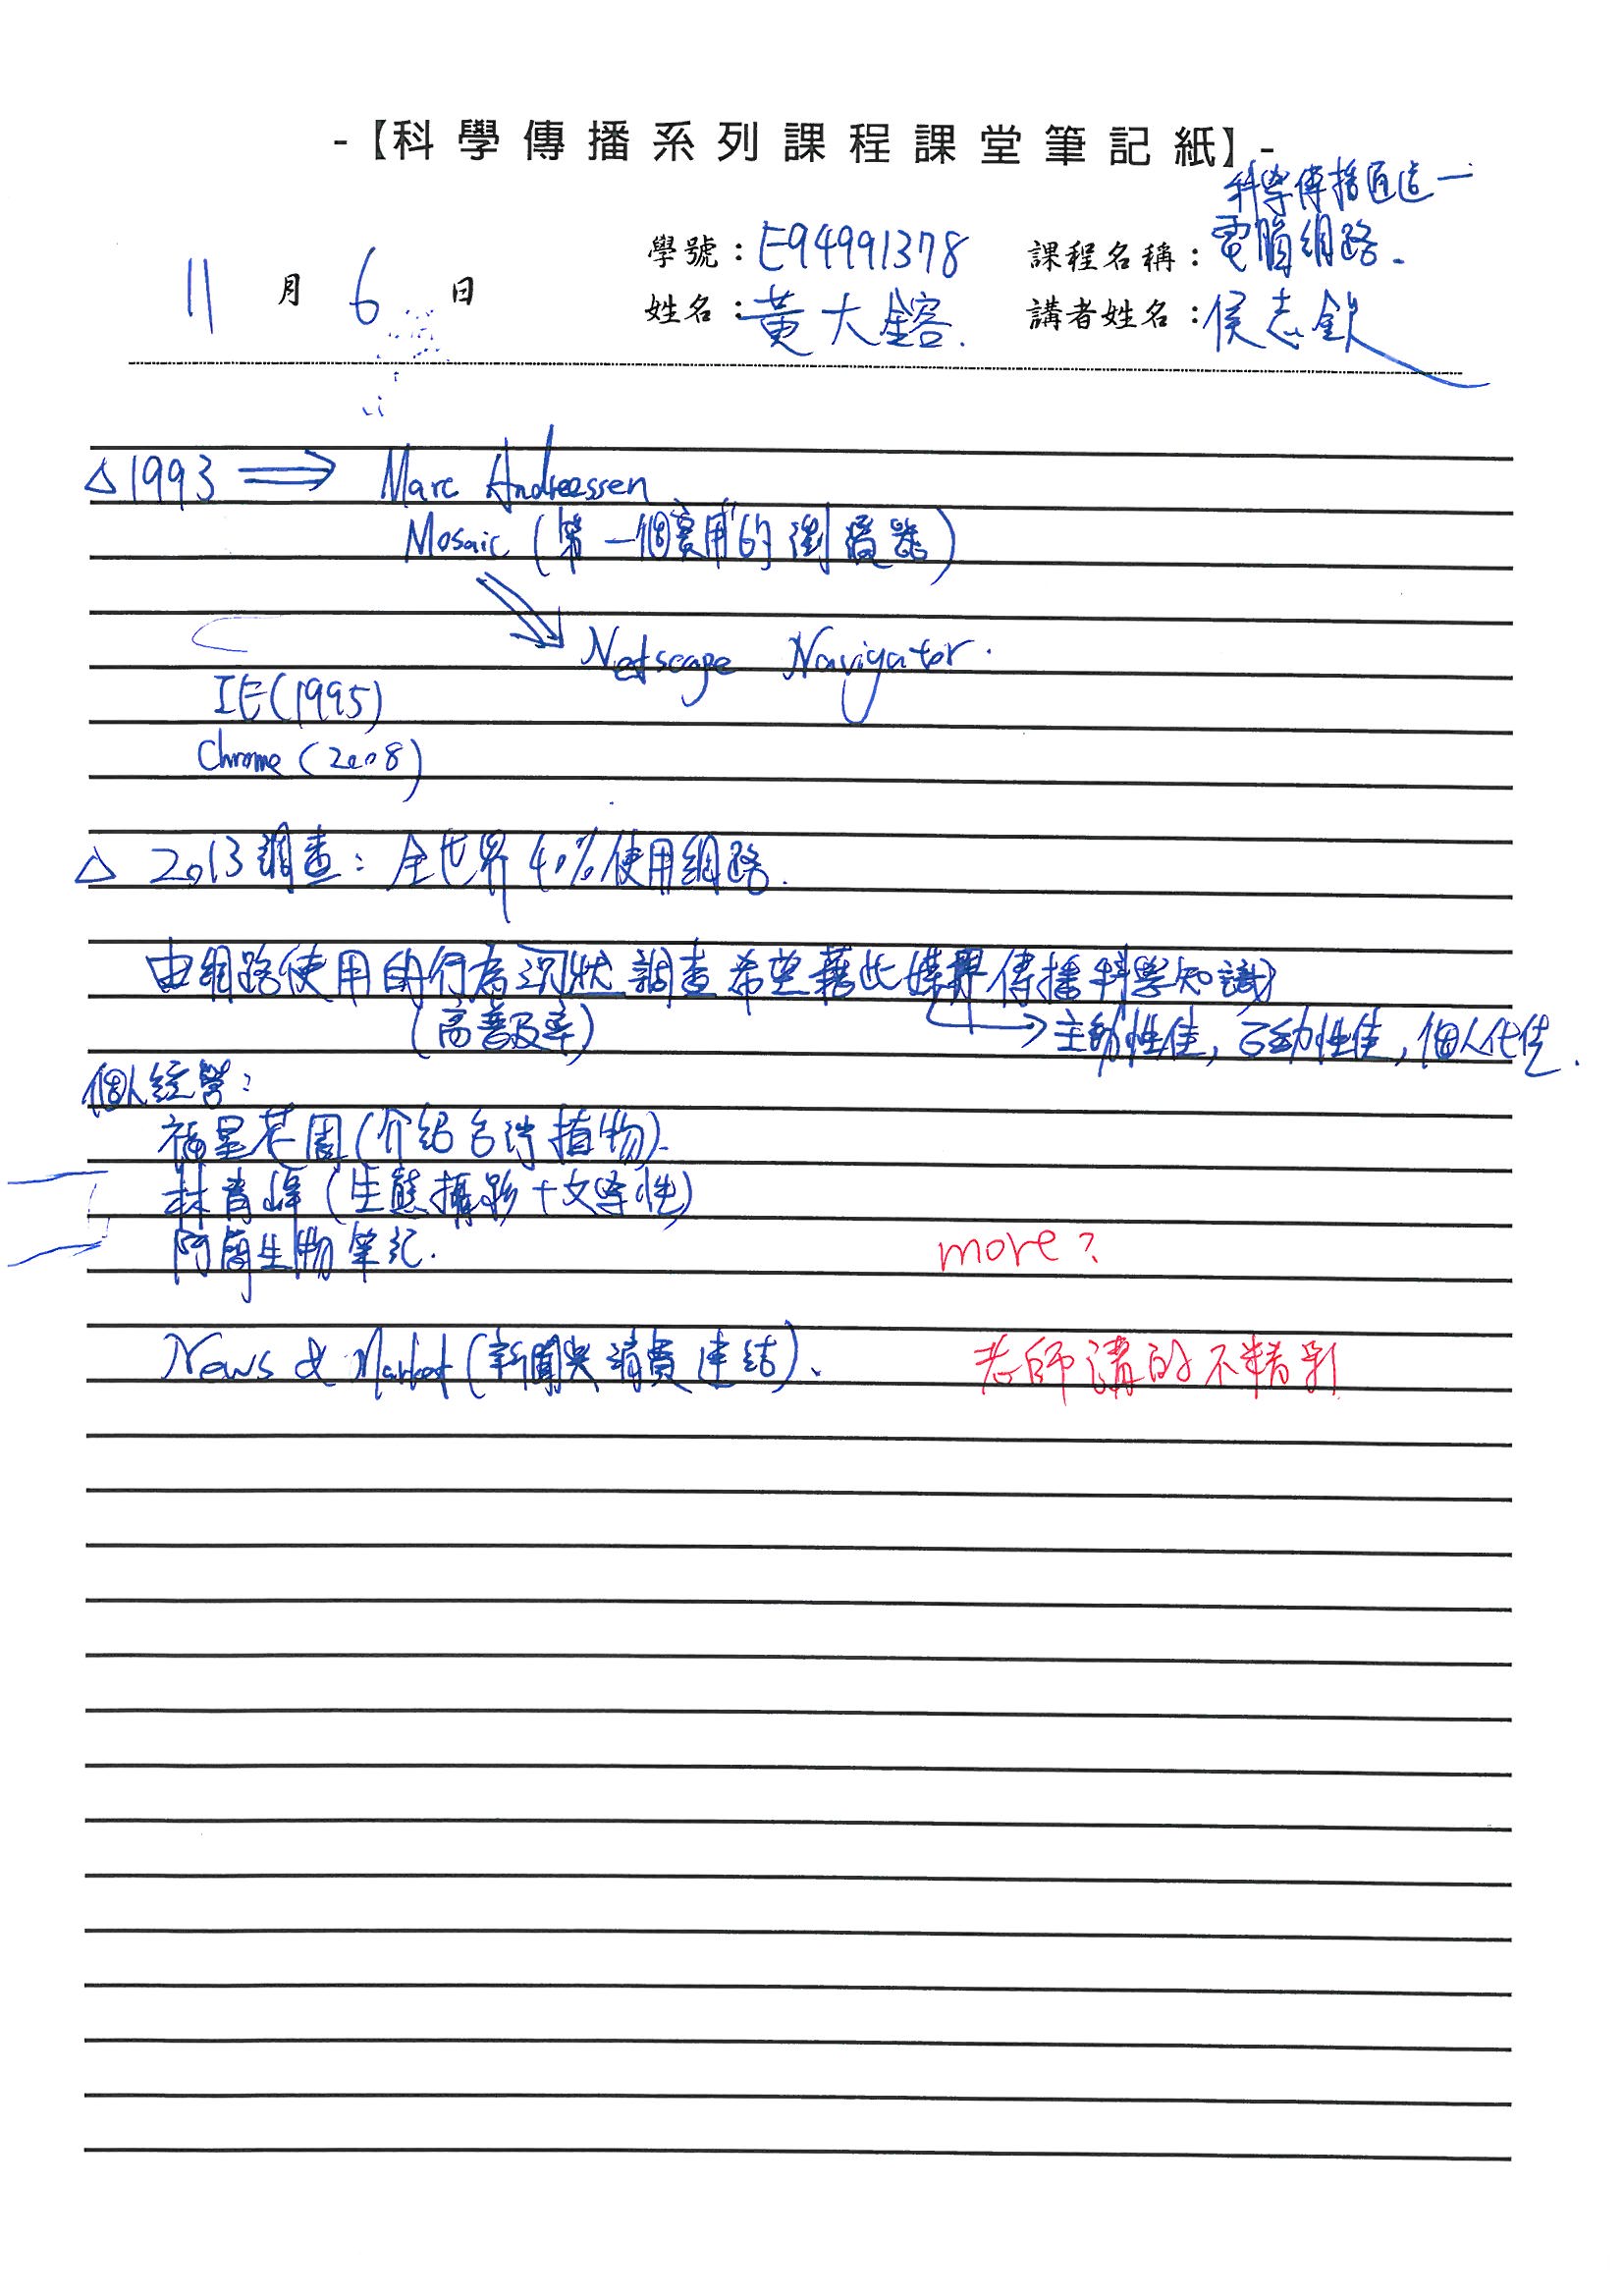 -【科學傳播系列課程課堂筆記紙】-
科學傳播通識一
11月6日 學號：E94991378 課程名稱：電腦網路.
姓名：黃大鎔. 講者姓名：侯志欽
△1993 ⟹ Marc Andreessen
Mosaic (第一個"實用"的瀏覽器)
Netscape Navigator.
IE(1995)
Chrome (2008)
△ 2013調查: 全世界40%使用網路.
由網路使用的行為現狀調查希望藉此媒界傳播科學知識
(高普及率) → 主動性佳, 互動性佳, 個人化佳.
個人經營:
福星花園(介紹台灣植物).
林青峰(生態攝影+文學性)
阿簡生物筆記.
more?
News & Market (新聞與消費連結).
老師講的不精彩